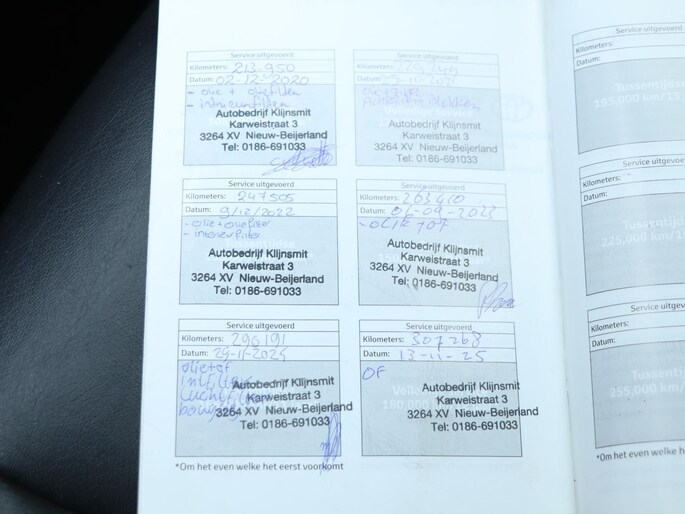 Service uitgevoerd
Kilometers: 213-950
Datum: 02-12-2020
- olie + oliefilter
- interieurfilter
Autobedrijf Klijnsmit
Karweistraat 3
3264 XV Nieuw-Beijerland
Tel: 0186-691033
Service uitgevoerd
Kilometers:
Datum:
Autobedrijf Klijnsmit
Karweistraat 3
3264 XV Nieuw-Beijerland
Tel: 0186-691033
Service uitgevoerd
Kilometers: 247505
Datum: 9/12/2022
- olie+oliefilter
- interieurfilter
Autobedrijf Klijnsmit
Karweistraat 3
3264 XV Nieuw-Beijerland
Tel: 0186-691033
Service uitgevoerd
Kilometers: 263410
Datum: 06-09-2023
Autobedrijf Klijnsmit
Karweistraat 3
3264 XV Nieuw-Beijerland
Tel: 0186-691033
Service uitgevoerd
Kilometers: 296191
Datum:
Autobedrijf Klijnsmit
Karweistraat 3
3264 XV Nieuw-Beijerland
Tel: 0186-691033
Service uitgevoerd
Kilometers: 307268
Datum: 13-11-25
OF
Autobedrijf Klijnsmit
Karweistraat 3
3264 XV Nieuw-Beijerland
Tel: 0186-691033
*Om het even welke het eerst voorkomt
Service uitgevoerd
Kilometers:
Datum:
Service uitgevoe
Kilometers:
Datum:
225,000 km/
Service uitgevoe
Kilometers:
Datum:
255,000 km/
*Om het even welke